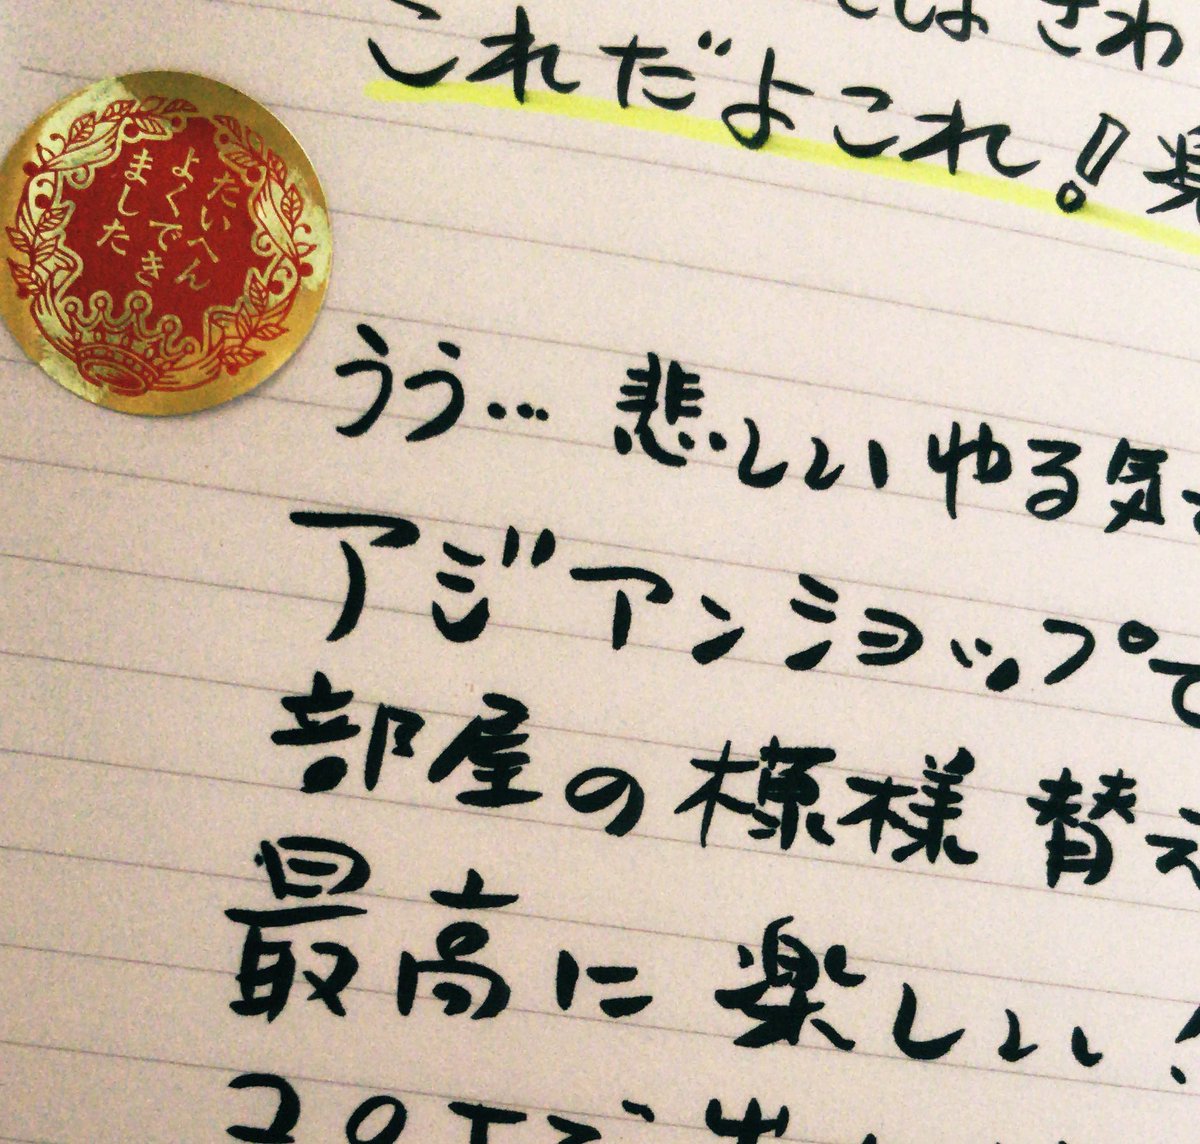 でしょ さわ
これだよこれ!楽
たいへん
よくでき
ました
うう… 悲しい ゆる気
アジアンショップで
部屋の模様替え
最高に楽しい!